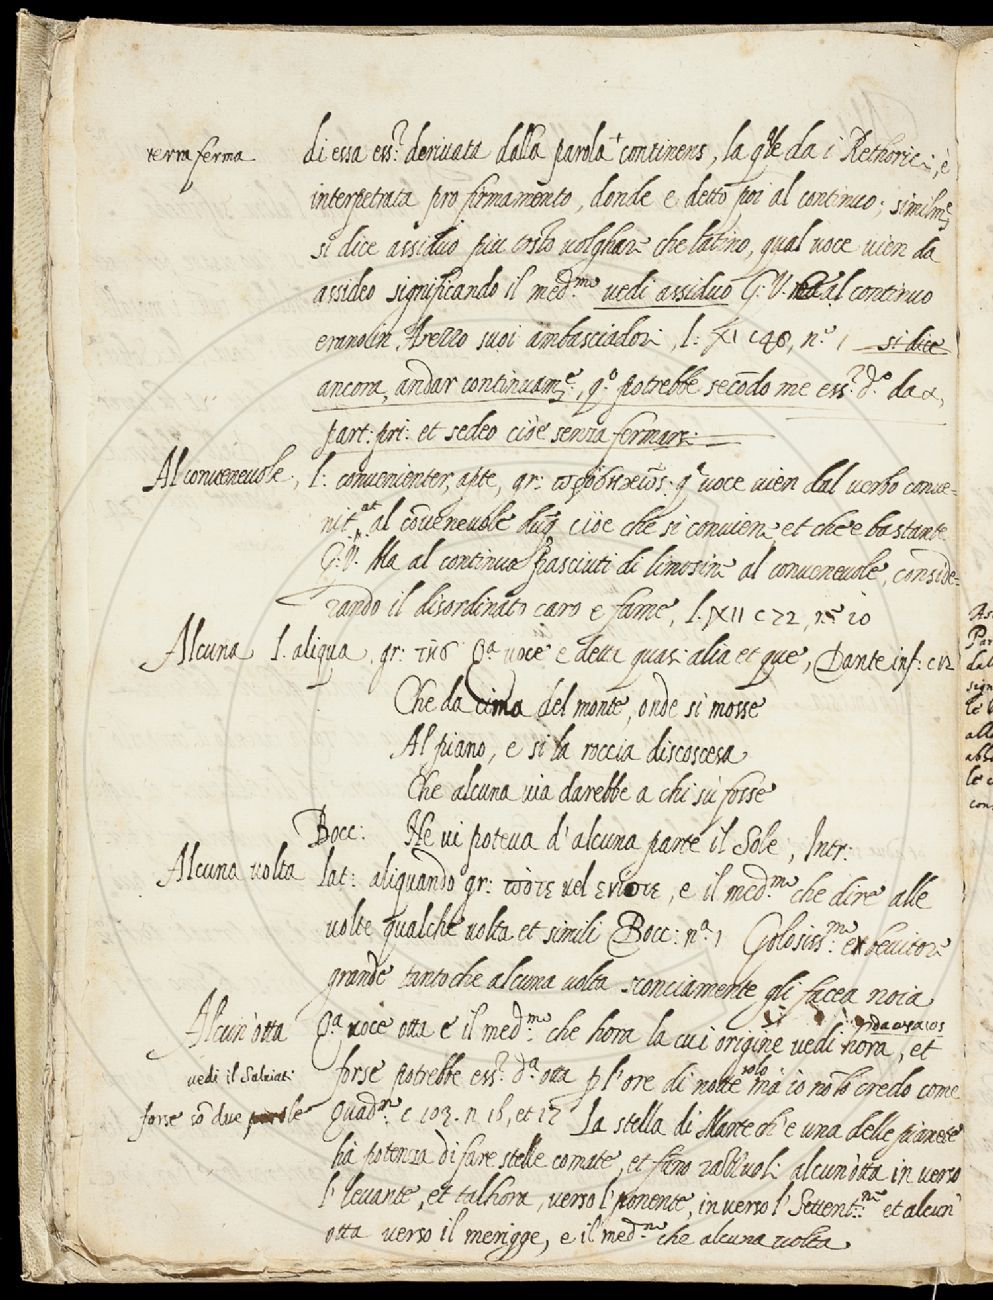 terra ferma
di essa ess.r derivata dalla parola + continens, la q.le da i Rethorici, è
interpetrata pro firmamento, donde e detto poi al continuo; similm.e
si dice assiduo piu tosto volghare che latino, qual voce vien da
assideo significando il med.mo vedi assiduo G: V. al continuo
erano in Arezzo suoi ambasciadori, l: XI c 48, n.e 1 si dice
ancora, andar continuam.e, q.o potrebbe secōdo me ess.r d.o da
part: pri: et sedeo cióe senza fermars:
Al convenevole, l: convenienter, apte, gr: q. voce vien dal verbo conve=
nit al cōvenevole dūq cióe che si conviene et che e bastante
G: V. Ma al continuo pasciuti di limosine al convenevole, conside=
rando il disordinato caro e fame, l. XII c 72, n.e 20
Alcuna l. aliqua, gr: τὶς Q.a voce e detta quasi alia et que, Dante inf: c 12
Che da cima del monte, onde si mosse
Al piano, e si la roccia discoscesa
Che alcuna via darebbe a chi sù fosse
Bocc: Ne vi poteva d'alcuna parte il Sole, Intr:
Alcuna volta lat: aliquando gr: πότε vel ενίοτε, e il med.mo che dire alle
volte qualche volta et simili Bocc: n.a 1 Golosiss.mo e bevitore
grande tantoche alcuna volta sconciamente gli facea noia
Alcun'otta Q.a voce otta e il med.mo che hora la cui origine vedi hora, et
vedi il Salviati
forse potrebbe ess.r d.a otta p l'ore di notte solo mà io nō lo credo come
forse sō due parole
Quad.n c 103. n 16, et 17 La stella di Marte ch'e una delle pianete
hà potenza di fare stelle comate, et fāno rabbuoli alcun'otta in verso
l'levante, et talhora, verso l'ponente, in verso l'Settent.ne et alcun'
otta verso il merigge, e il med.mo che alcuna volta